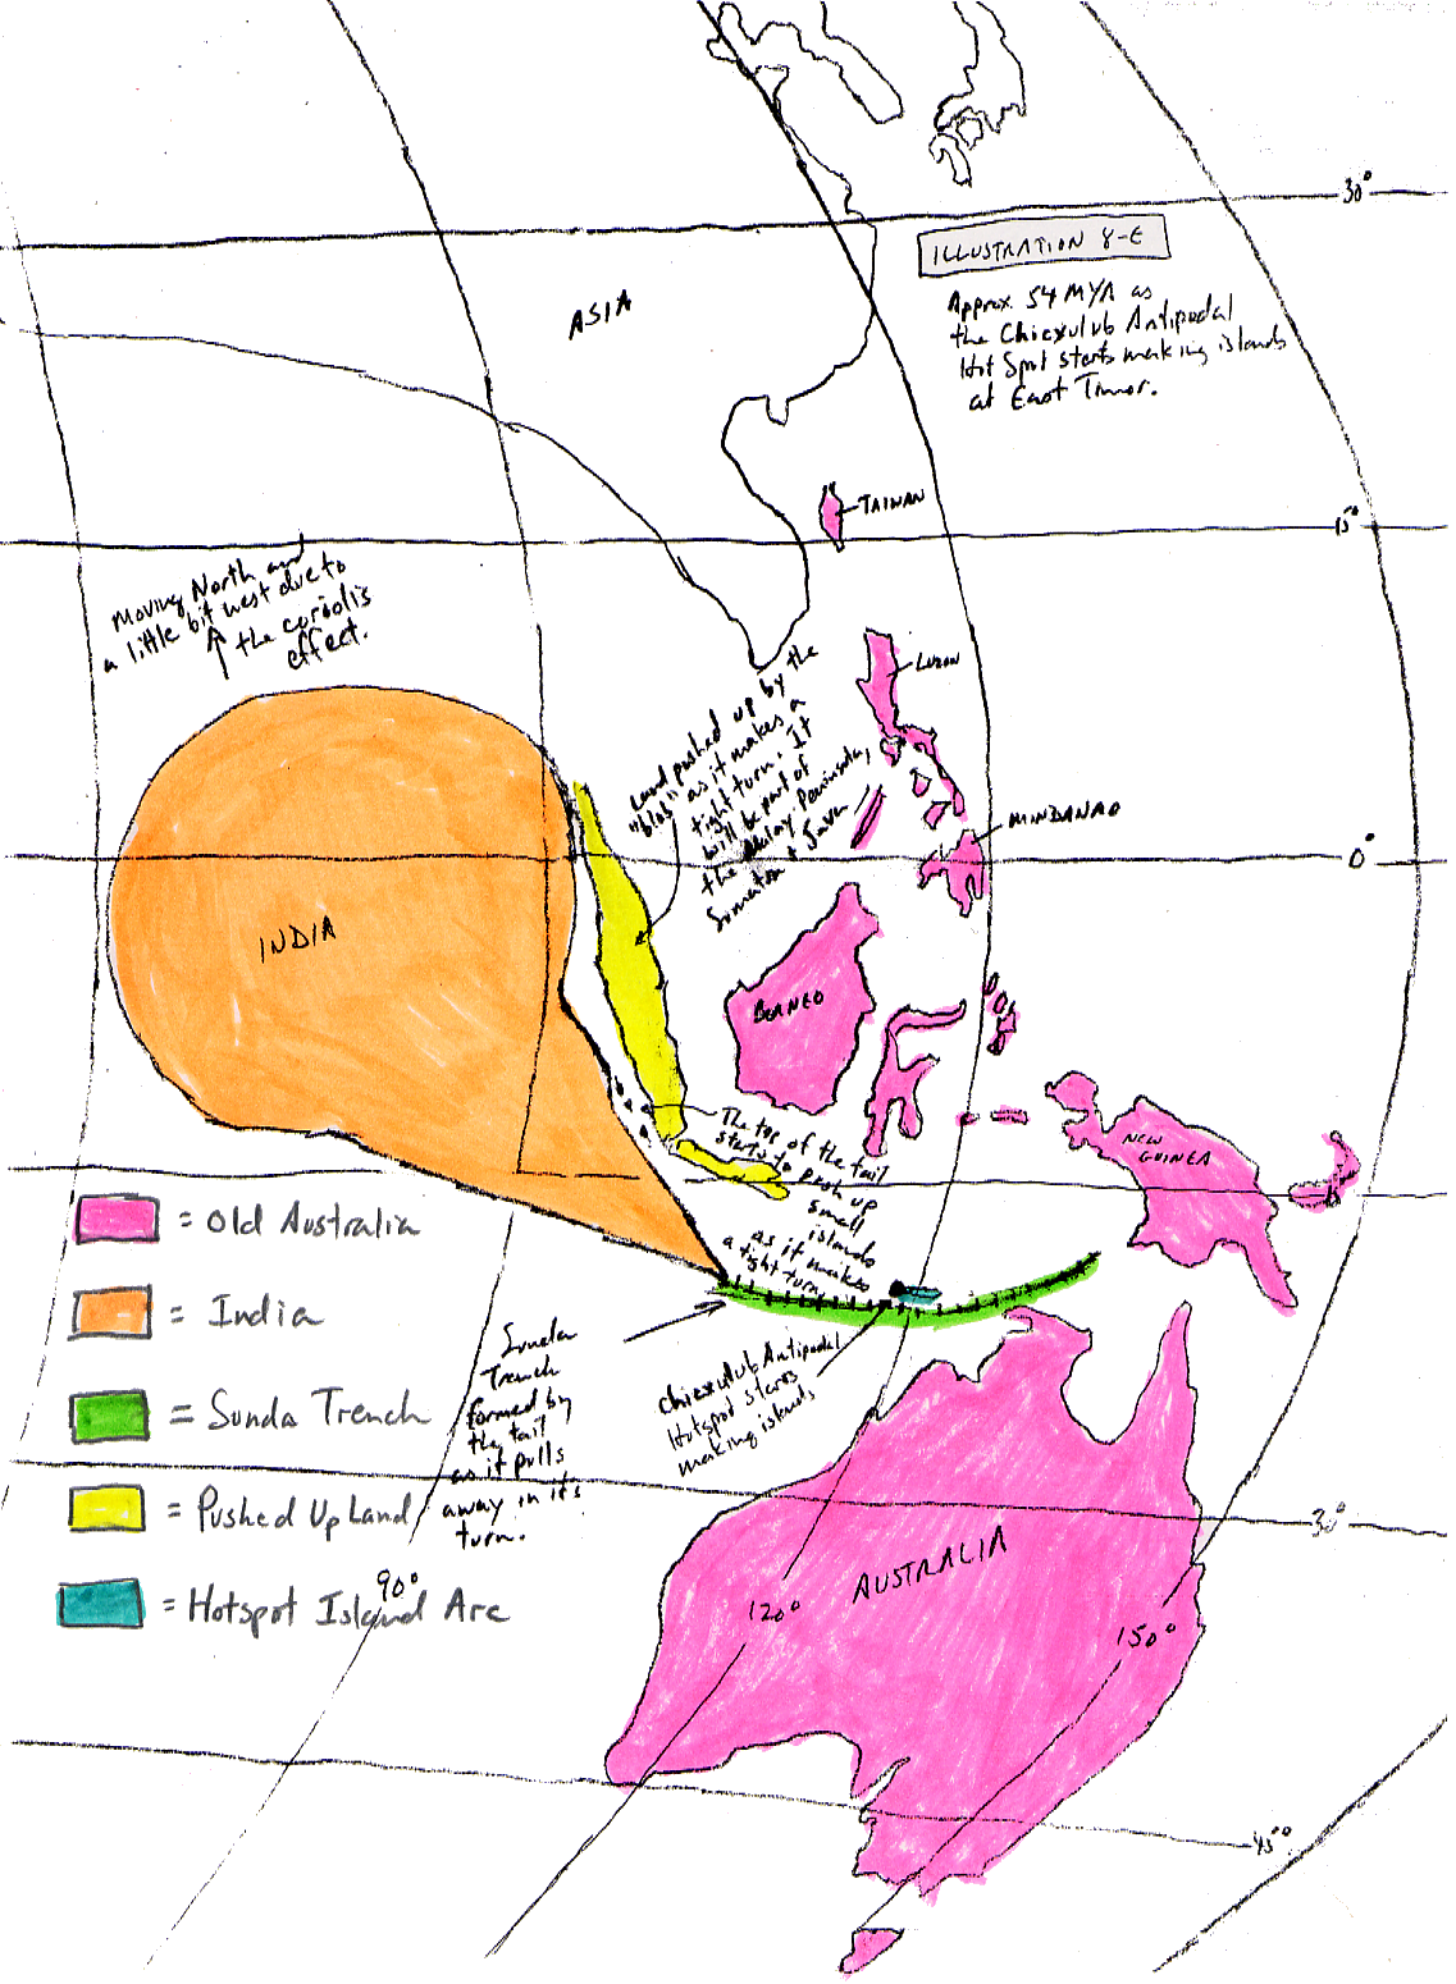 30°
ILLUSTRATION 8-E
Approx. 54 MYA as
the Chicxulub Antipodal
Hot Spot starts making islands
at East Timor.
ASIA
TAIWAN
15°
Moving North and
a little bit west due to
the coriolis
effect.
LUZON
Land pushed up by the
"blob" as it makes a
tight turn. It
will be part of
the Malay Peninsula,
Sumatra & Java
MINDANAO
0°
INDIA
BORNEO
The top of the tail
starts to push up
small
islands
as it makes
a tight turn.
NEW
GUINEA
= Old Australia
= India
= Sunda Trench
= Pushed Up Land
= Hotspot Island Arc
Sunda
Trench
formed by
the tail
as it pulls
away in it's
turn.
Chicxulub Antipodal
Hotspot starts
making islands
30°
AUSTRALIA
90°
120°
150°
45°